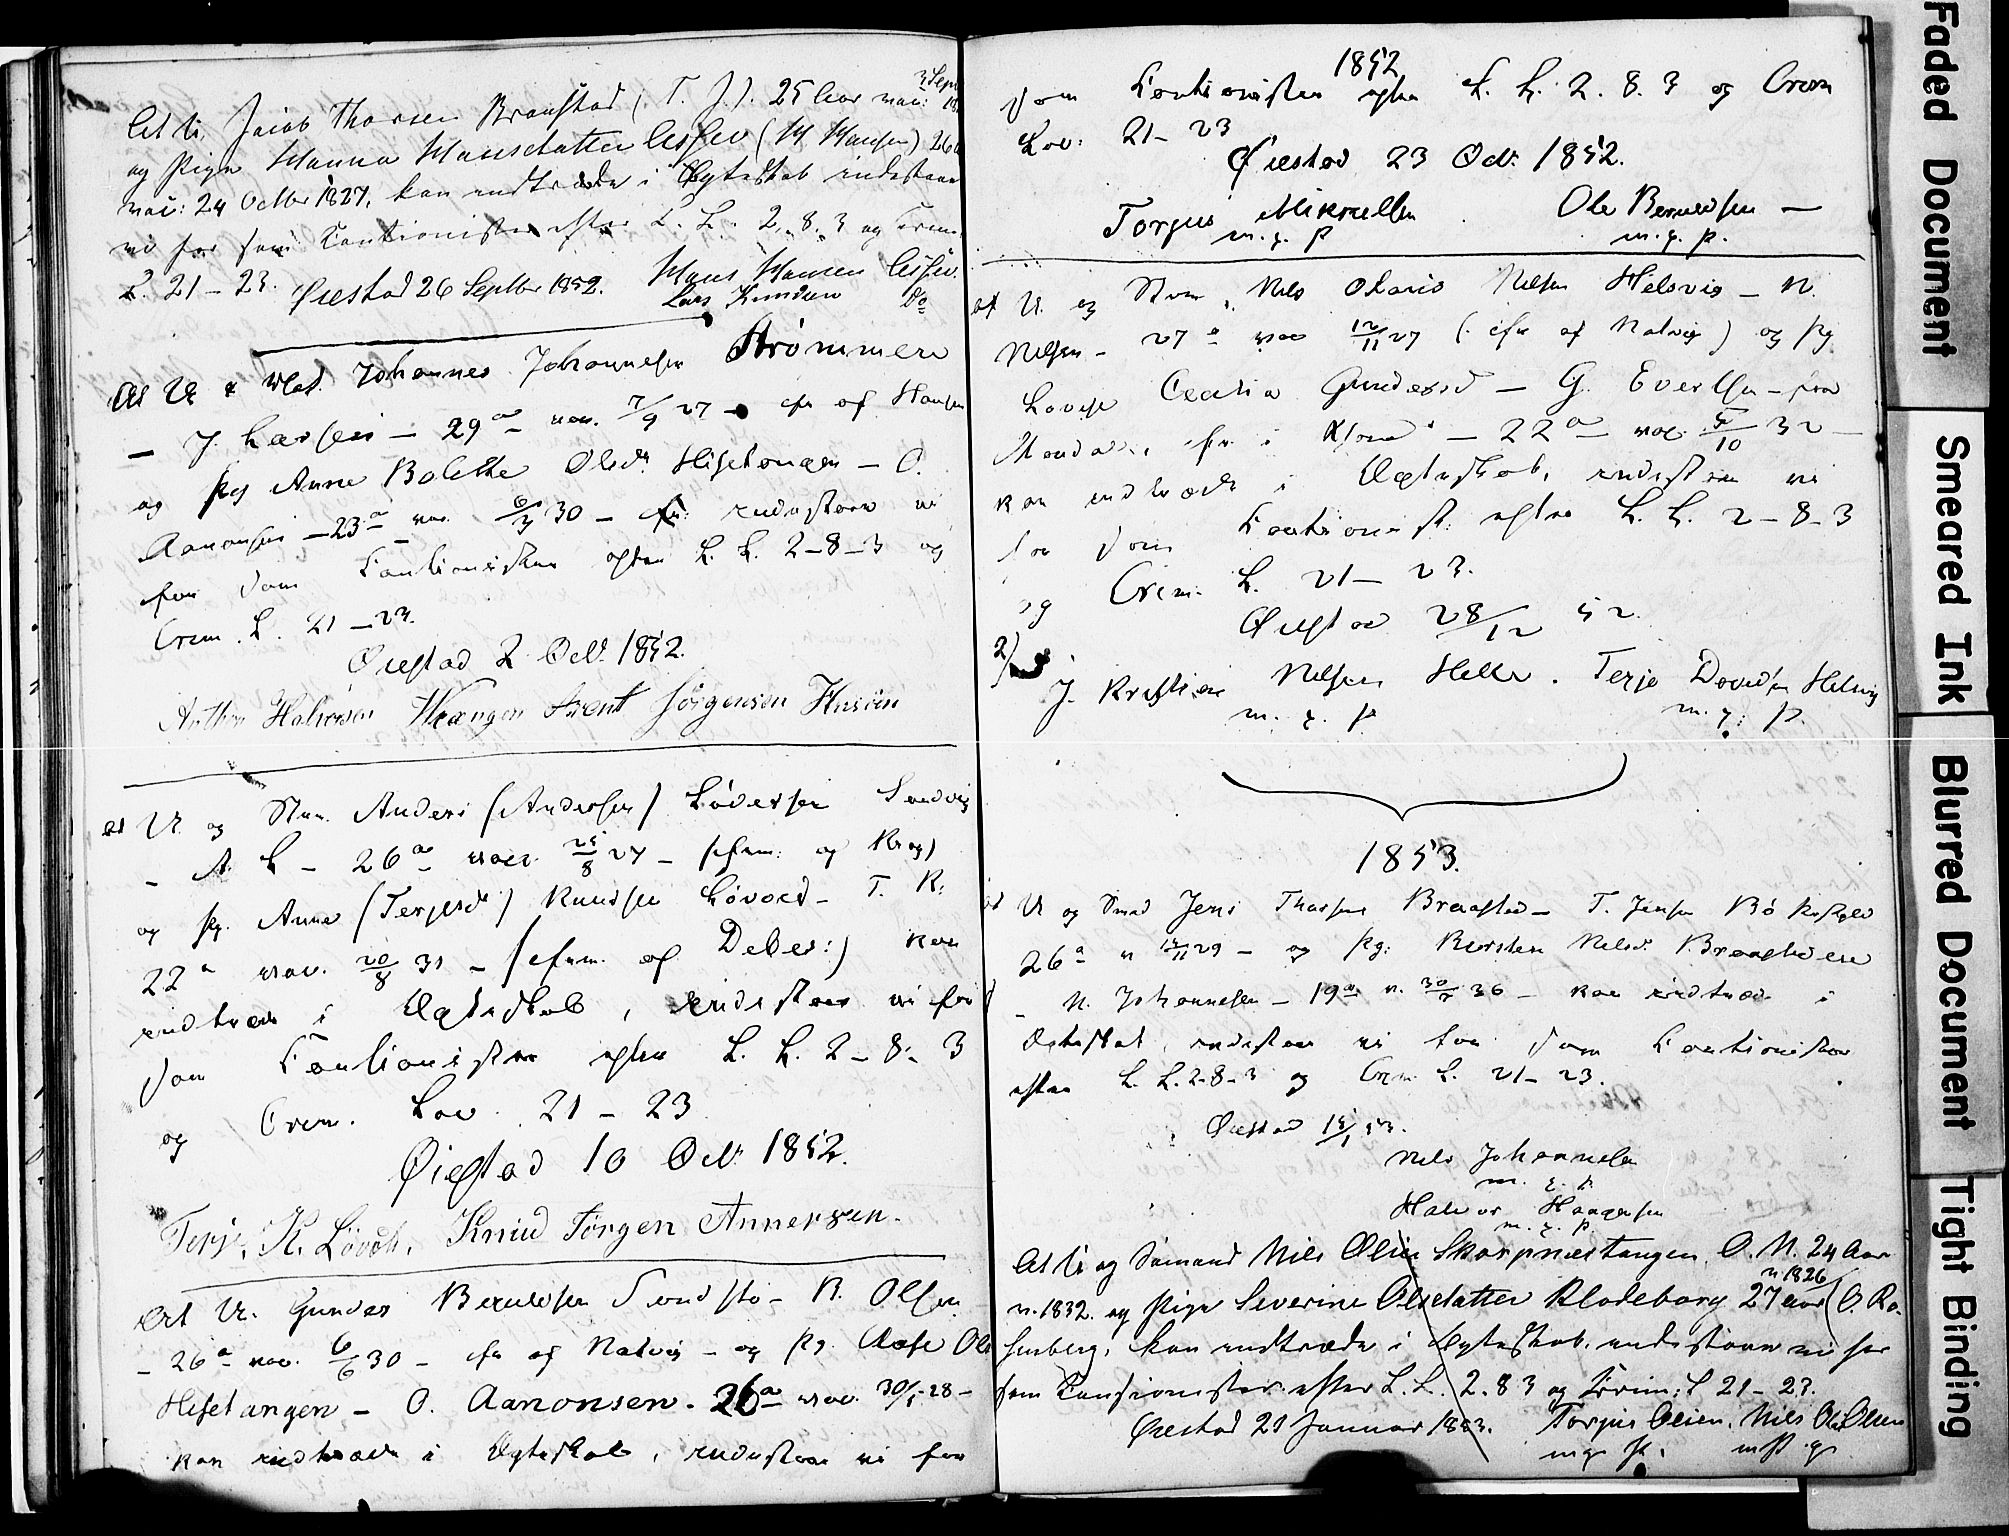 At U. Jacob Thorsen Braastad (T. J.) 25 Aar vac: 3 Sept
og Pige Hanna Hansdatter Assev (H Hansen) 26
vac: 24 Octbr 1827, kan indtræde i Ægteskab indestaae
vi for som Cautionister efter L. L. 2. 8. 3 og Crim.
L. 21 – 23. Øiestad 26 Septbr 1852. Hans Hansen Assev.
Lars Knudsen Do
At U. & Mat. Johannes Johannesen Strømmen
– J. Larsen – 29 a vac. 7/9 27 – cfr af Hansen
og Pig Anne Bolette Olsdr Hisetangen – O.
Aanonsen – 23 a vac. 6/3 30 – indestaae vi
for som Cautionister efter L. L. 2–8–3 og
Crim. L. 21 – 23.
Øiestad 2 Octr 1852.
Anthon Halvorsen Wrængen Arent Jörgensen
at U. og Stm. Anders (Andersen) Lödersen Sandvig
– A. L – 26 a vac. 25/8 27 – (cfrm. og Krog)
og Pg. Anne (Terjesdr) Knudsen Løvold – T. K.
22 a vac. 20/8 31 – (cfrm. af Debes:) kan
indtræde i Ægteskab, indestaae vi for
som Cautionister efter L. L. 2 – 8 – 3
og Crim. Lov. 21 – 23
Øiestad 10 Octr 1852.
Terje. K. Lövold. Knud Jörgen Annersen.
At U. Gunder Beruldsen Sandstö – B. Olsen
– 26 a vac. 6/6 30 – cfr af Natvig – og Pg. Aase Ols
Hisetangen – O. Aanonsen. 26 a vac. 30/ 28 –
kan indtræde i Ægteskab, indestaae vi for
1852
som Cautionister efter L. L. 2. 8. 3 og Crim
Lov: 21 – 23
Øiestad 23 Octr 1852.
Torjus Mikkelsen Ole Berulsen –
m. f. P m. f. P.
at U. og Stm. Nels Olaus Nelsen Helsvig – N.
Nelsen – 27 a vac 12/11 27 (cfr af Natvig) og Pg
Lovise Cecilia Gundersd – G. Evertsen – fra
Mandal, cfr i – 22 a vac. 5/10 32 –
kan indtræde i Ægteskab, indestaae vi
for som Cautionist. efter L. L. 2 – 8 – 3
og Crim. L. 21 – 23.
Øiestad 28/12 52.
2) J. Kristian Nelsen Helle. Terje Davidsen Helsvig
m. f. P m. f. P.
1853.
at U og Smd Jens Thorsen Braastad – T. Jensen
26 a v 15/11 29 – og Pg: Kirsten Nelsdr Braastadeie
– N. Johannesen – 19 a v. 30/ 36 – kan indtræde i
Ægteskab, indestaae vi for som Cautionister
efter L. L. 2–8–3 og Crim. L. 21 – 23.
Øiestad 15/1 53.
Nels Johannesen
m. f. P.
Halvor Haagensen
m. f. P.
At U og Sømand Nils Olsen Skarpnæstangen. O. N. 24 Aar
v. 1832. og Pige Severine Olsdatter Klodeborg 27 Aar v 1826 (O. Ro-
senberg, kan indtræde i Ægteskab, indestaae vi for
som Cautionister efter L. L. 2. 8 3 og Crim: L 21 – 23.
Øiestad 21 Januar 1853. Torjus Olsen. Nils Ols Olsen
m f P. m P f
Faded Document
Smeared Ink
Blurred Document
Tight Binding